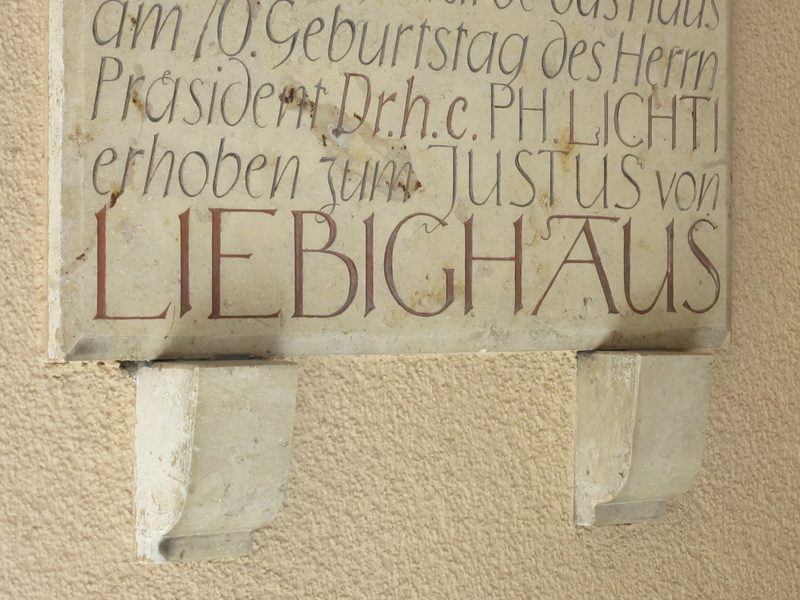 das Haus
am 70. Geburtstag des Herrn
Präsident Dr.h.c. PH. LICHTI
erhoben zum JUSTUS von
LIEBIGHAUS